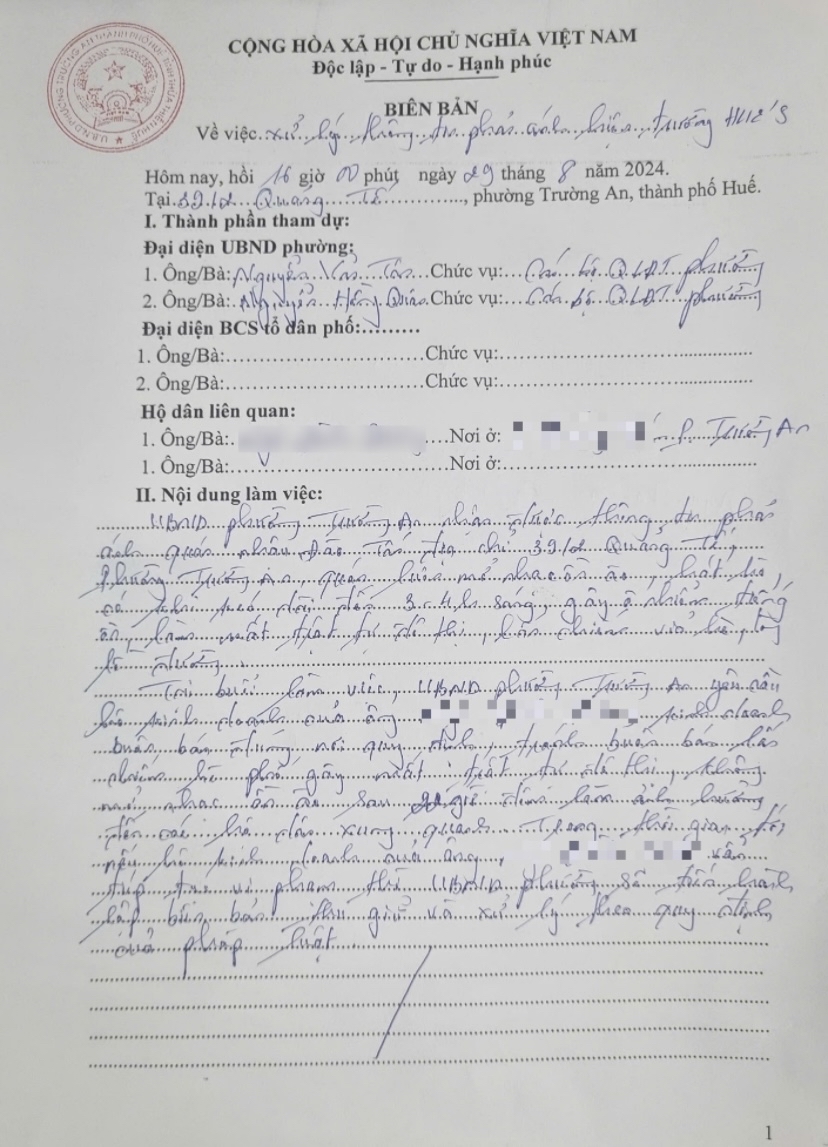 CỘNG HÒA XÃ HỘI CHỦ NGHĨA VIỆT NAM
Độc lập - Tự do - Hạnh phúc
BIÊN BẢN
Về việc xử lý thông tin phản ánh hiện trường HueS
Hôm nay, hồi 16 giờ 00 phút ngày 29 tháng 8 năm 2024.
Tại 39/2 Quảng Tế, phường Trường An, thành phố Huế.
I. Thành phần tham dự:
Đại diện UBND phường:
1. Ông/Bà: Nguyễn Chức vụ: Cán bộ QLĐT phường
2. Ông/Bà: Nguyễn Hồng Chức vụ: Cán bộ QLĐT phường
Đại diện BCS tổ dân phố:.........
1. Ông/Bà:.............................Chức vụ:..........................................
2. Ông/Bà:.............................Chức vụ:..........................................
Hộ dân liên quan:
1. Ông/Bà: Nơi ở: P. Trường An
1. Ông/Bà: Nơi ở:..........................................
II. Nội dung làm việc:
UBND phường Trường An nhận được thông tin phản
ánh quán nhậu tại địa chỉ Quảng Tế,
Phường Trường An, quán luôn mở nhạc ồn ào, hát hò,
có khi kéo dài đến 3-4h sáng, gây ô nhiễm tiếng
ồn, làm mất trật tự đô thị, lấn chiếm vỉa hè, lòng
lề đường.
Tại buổi làm việc, UBND phường Trường An yêu cầu
hộ kinh doanh của ông kinh doanh
buôn bán đúng nơi quy định, tránh buôn bán lấn
chiếm hè phố gây mất trật tự đô thị, không
mở nhạc ồn ào sau 22 giờ đêm làm ảnh hưởng
đến các hộ dân xung quanh. Trong thời gian tới
nếu hộ kinh doanh của ông vẫn
tiếp tục vi phạm thì UBND phường sẽ tiến hành
lập biên bản thu giữ và xử lý theo quy định
của pháp luật.
1